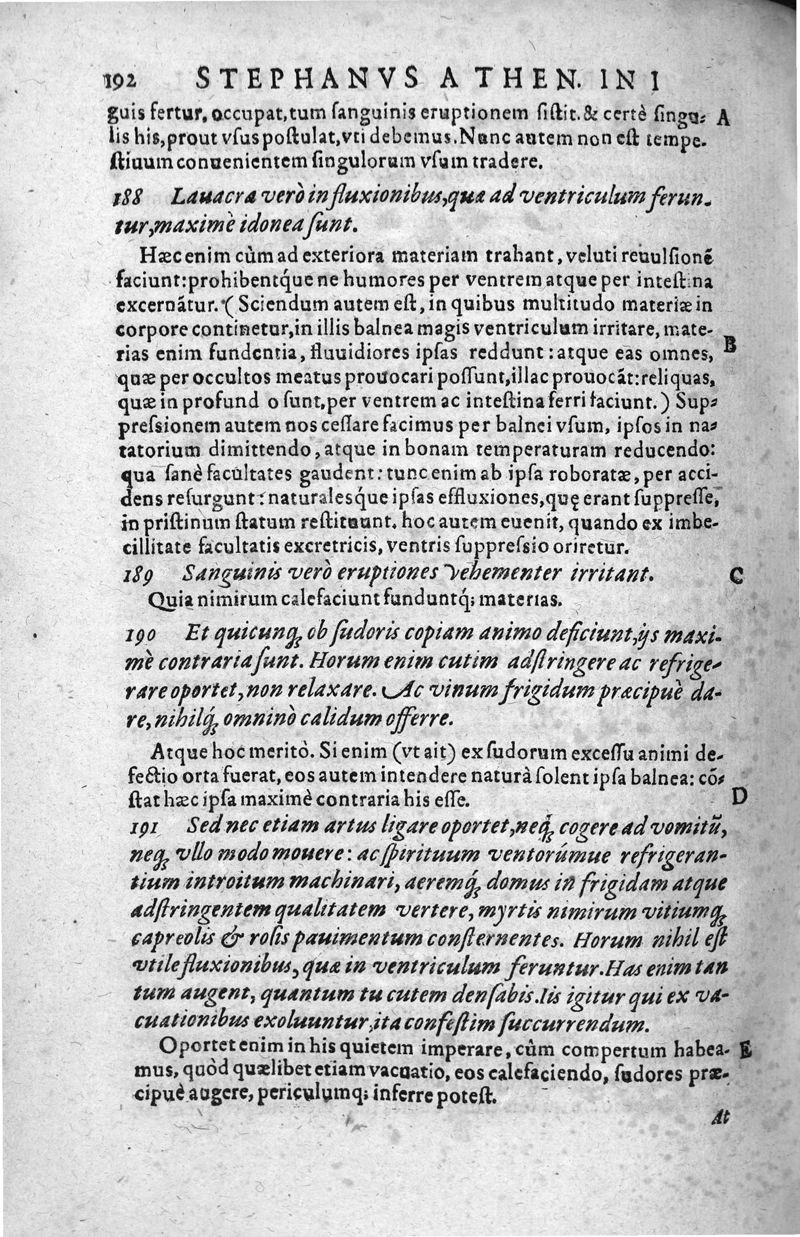 192 STEPHANVS ATHEN. IN I
guis fertur, occupat, tum ſanguinis eruptionem ſiſtit. & certè ſingu- A
lis his, prout vſus poſtulat, vti debemus. Nunc autem non eſt tempe-
ſtiuum conuenientem ſingulorum vſum tradere.
188 Lauacra verò in fluxionibus, quæ ad ventriculum ferun-
tur, maximè idonea ſunt.
Hæc enim cùm ad exteriora materiam trahant, veluti reuulſionē
faciunt: prohibentq́ue ne humores per ventrem atque per inteſtina
excernātur. (Sciendum autem eſt, in quibus multitudo materiæ in
corpore continetur, in illis balnea magis ventriculum irritare, mate-
rias enim fundentia, fluuidiores ipſas reddunt: atque eas omnes, B
quæ per occultos meatus prouocari poſſunt, illac prouocāt: reliquas,
quæ in profund o ſunt, per ventrem ac inteſtina ferri faciunt.) Sup-
preſsionem autem nos ceſſare facimus per balnei vſum, ipſos in na-
tatorium dimittendo, atque in bonam temperaturam reducendo:
qua ſanè facultates gaudent: tunc enim ab ipſa roboratæ, per acci-
dens reſurgunt: naturalesq́ue ipſas effluxiones, quę erant ſuppreſſę,
in priſtinum ſtatum reſtituunt. hoc autem euenit, quando ex imbe-
cillitate facultatis excretricis, ventris ſuppreſsio oriretur.
189 Sanguinis verò eruptiones vehementer irritant. C
Quia nimirum calefaciunt funduntq́; materias.
190 Et quicunq; ob ſudoris copiam animo deficiunt, ijs maxi-
mè contraria ſunt. Horum enim cutim adſtringere ac refrige-
rare oportet, non relaxare. Ac vinum frigidum præcipuè da-
re, nihilq́; omninò calidum offerre.
Atque hoc meritò. Si enim (vt ait) ex ſudorum exceſſu animi de-
fectio orta fuerat, eos autem intendere naturà ſolent ipſa balnea: cō-
ſtat hæc ipſa maximè contraria his eſſe. D
191 Sed nec etiam artus ligare oportet, neq́; cogere ad vomitū,
neq; vllo modo mouere: ac ſpirituum ventorúmue refrigeran-
tium introitum machinari, aeremq́; domus in frigidam atque
adſtringentem qualitatem vertere, myrtis nimirum vitiumq;
capreolis & roſis pauimentum conſternentes. Horum nihil eſt
vtile fluxionibus, quæ in ventriculum feruntur. Has enim tan
tum augent, quantum tu cutem denſabis. Iis igitur qui ex va-
cuationibus exoluuntur, ita confeſtim ſuccurrendum.
Oportet enim in his quietem imperare, cùm compertum habea- E
mus, quòd quælibet etiam vacuatio, eos calefaciendo, ſudores præ-
cipuè augere, periculumq; inferre poteſt.
At